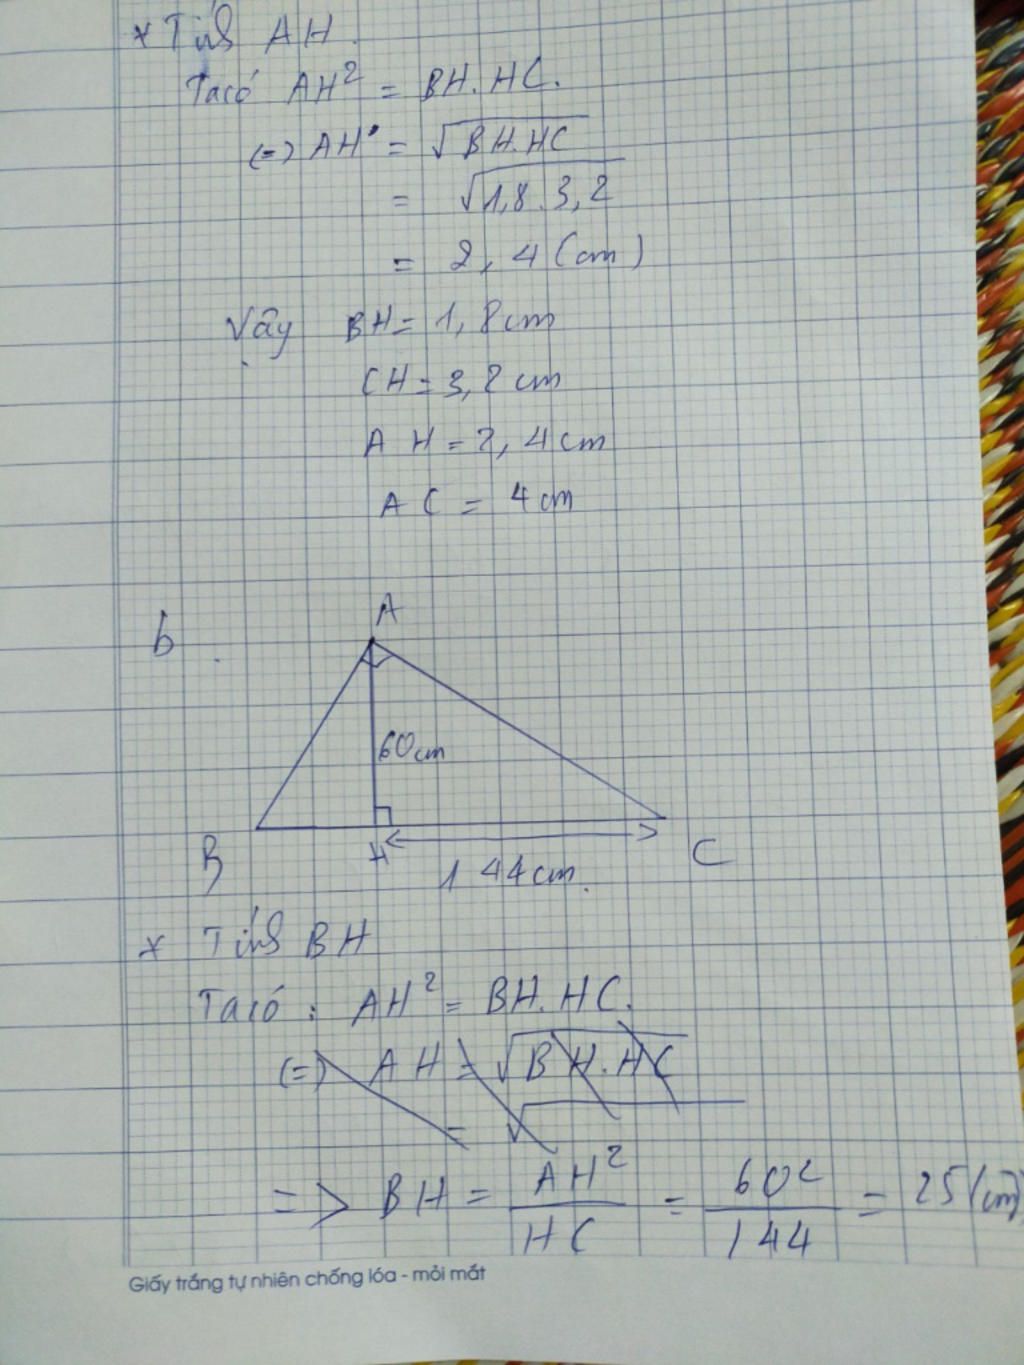 * Tính AH.
Ta có AH² = BH.HC.
(=) AH = √BH.HC
= √1,8.3,2
= 2,4 (cm)
Vậy BH = 1,8cm
CH = 3,2 cm
AH = 2,4cm
AC = 4cm
b.
A
60cm
B H C
144cm.
* Tính BH
Ta có : AH² = BH.HC.
(=) AH = √BH.HC
= √
=> BH = AH²/HC = 60²/144 = 25 (cm)
Giấy trắng tự nhiên chống lóa - mỏi mắt